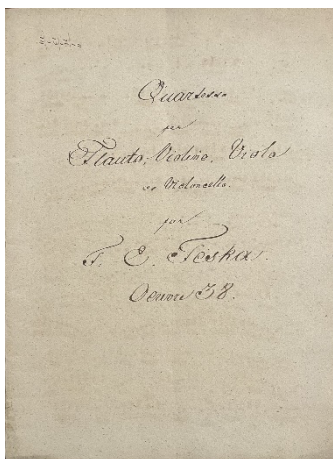 Quartetto
per
Flauto, Violino, Viola
e Violoncello.
par
F. E. Feska.
Oeuvre 38.